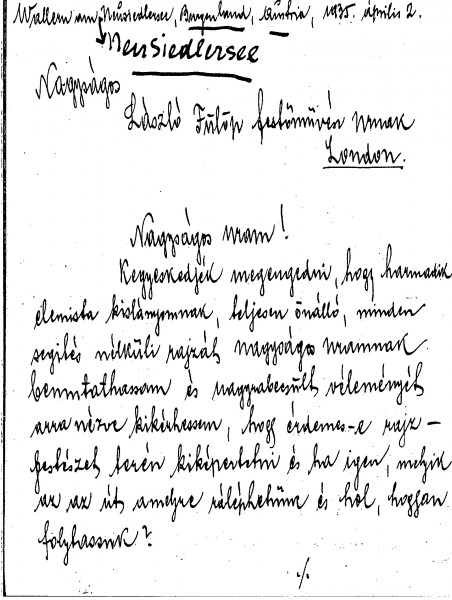 Wallern am Neusiedlersee, Burgenland, Austria, 1935. április 2.
Neusiedlersee
Nagyságos
László Fülöp festőművész Urnak
London.
Nagyságos Uram!
Kegyeskedjék megengedni, hogy harmadik
elemista kislányomnak, teljesen önálló, minden
segítés nélküli rajzát nagyságos Uramnak
bemutathassam és nagyrabecsült véleményét
arra nézve kikérhessem, hogy érdemes-e rajz-
festészet terén kiképeztetni és ha igen, melyik
az az út amelyre ráléphetünk és hol, hogyan
folytassuk?
./.